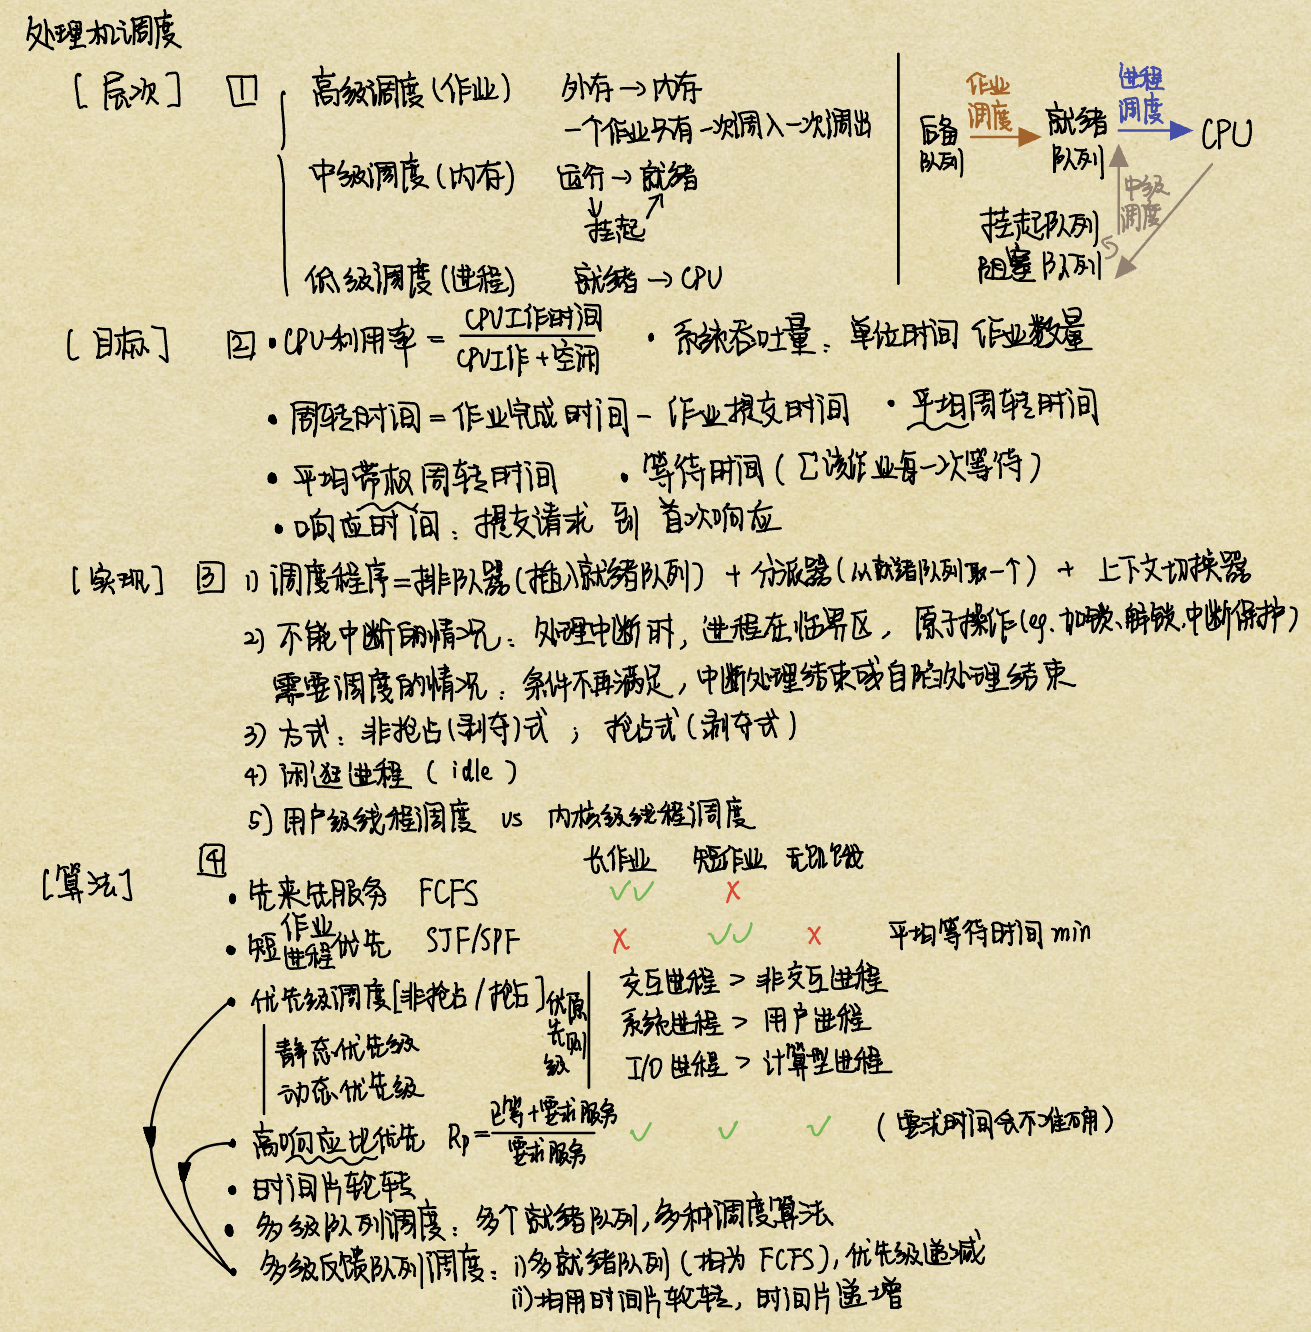 处理机调度
[层次] 1 高级调度(作业) 外存→内存
一个作业只有一次调入一次调出
中级调度(内存) 运行→就绪
挂起
低级调度(进程) 就绪→CPU
作业调度
进程调度
后备队列
就绪队列
CPU
中级调度
挂起队列
阻塞队列
[目标] 2 ·CPU利用率 = CPU工作时间 / CPU工作+空闲 ·系统吞吐量：单位时间 作业数量
·周转时间=作业完成时间-作业提交时间 ·平均周转时间
·平均带权周转时间 ·等待时间(Σ该作业每一次等待)
·响应时间：提交请求 到 首次响应
[实现] 3 1)调度程序=排队器(插入就绪队列) + 分派器(从就绪队列取一个) + 上下文切换器
2) 不能中断的情况：处理中断时，进程在临界区，原子操作(eg.加锁、解锁.中断保护)
需要调度的情况：条件不再满足，中断处理结束或自陷处理结束
3) 方式：非抢占(剥夺)式；抢占式(剥夺式)
4) 闲逛进程(idle)
5) 用户级线程调度 vs 内核级线程调度
[算法] 4 长作业 短作业 无饥饿
·先来先服务 FCFS ✓✓ ×
·短作业/进程优先 SJF/SPF × ✓✓ × 平均等待时间min
·优先级调度[非抢占/抢占]
静态优先级
动态优先级
优先级原则
交互进程 > 非交互进程
系统进程 > 用户进程
I/O进程 > 计算型进程
·高响应比优先 Rp=已等+要求服务 / 要求服务 ✓ ✓ ✓ (要求时间会不准确)
·时间片轮转
·多级队列调度：多个就绪队列,多种调度算法
·多级反馈队列调度：i)多就绪队列(相为 FCFS),优先级递减
ii)相用时间片轮转，时间片递增